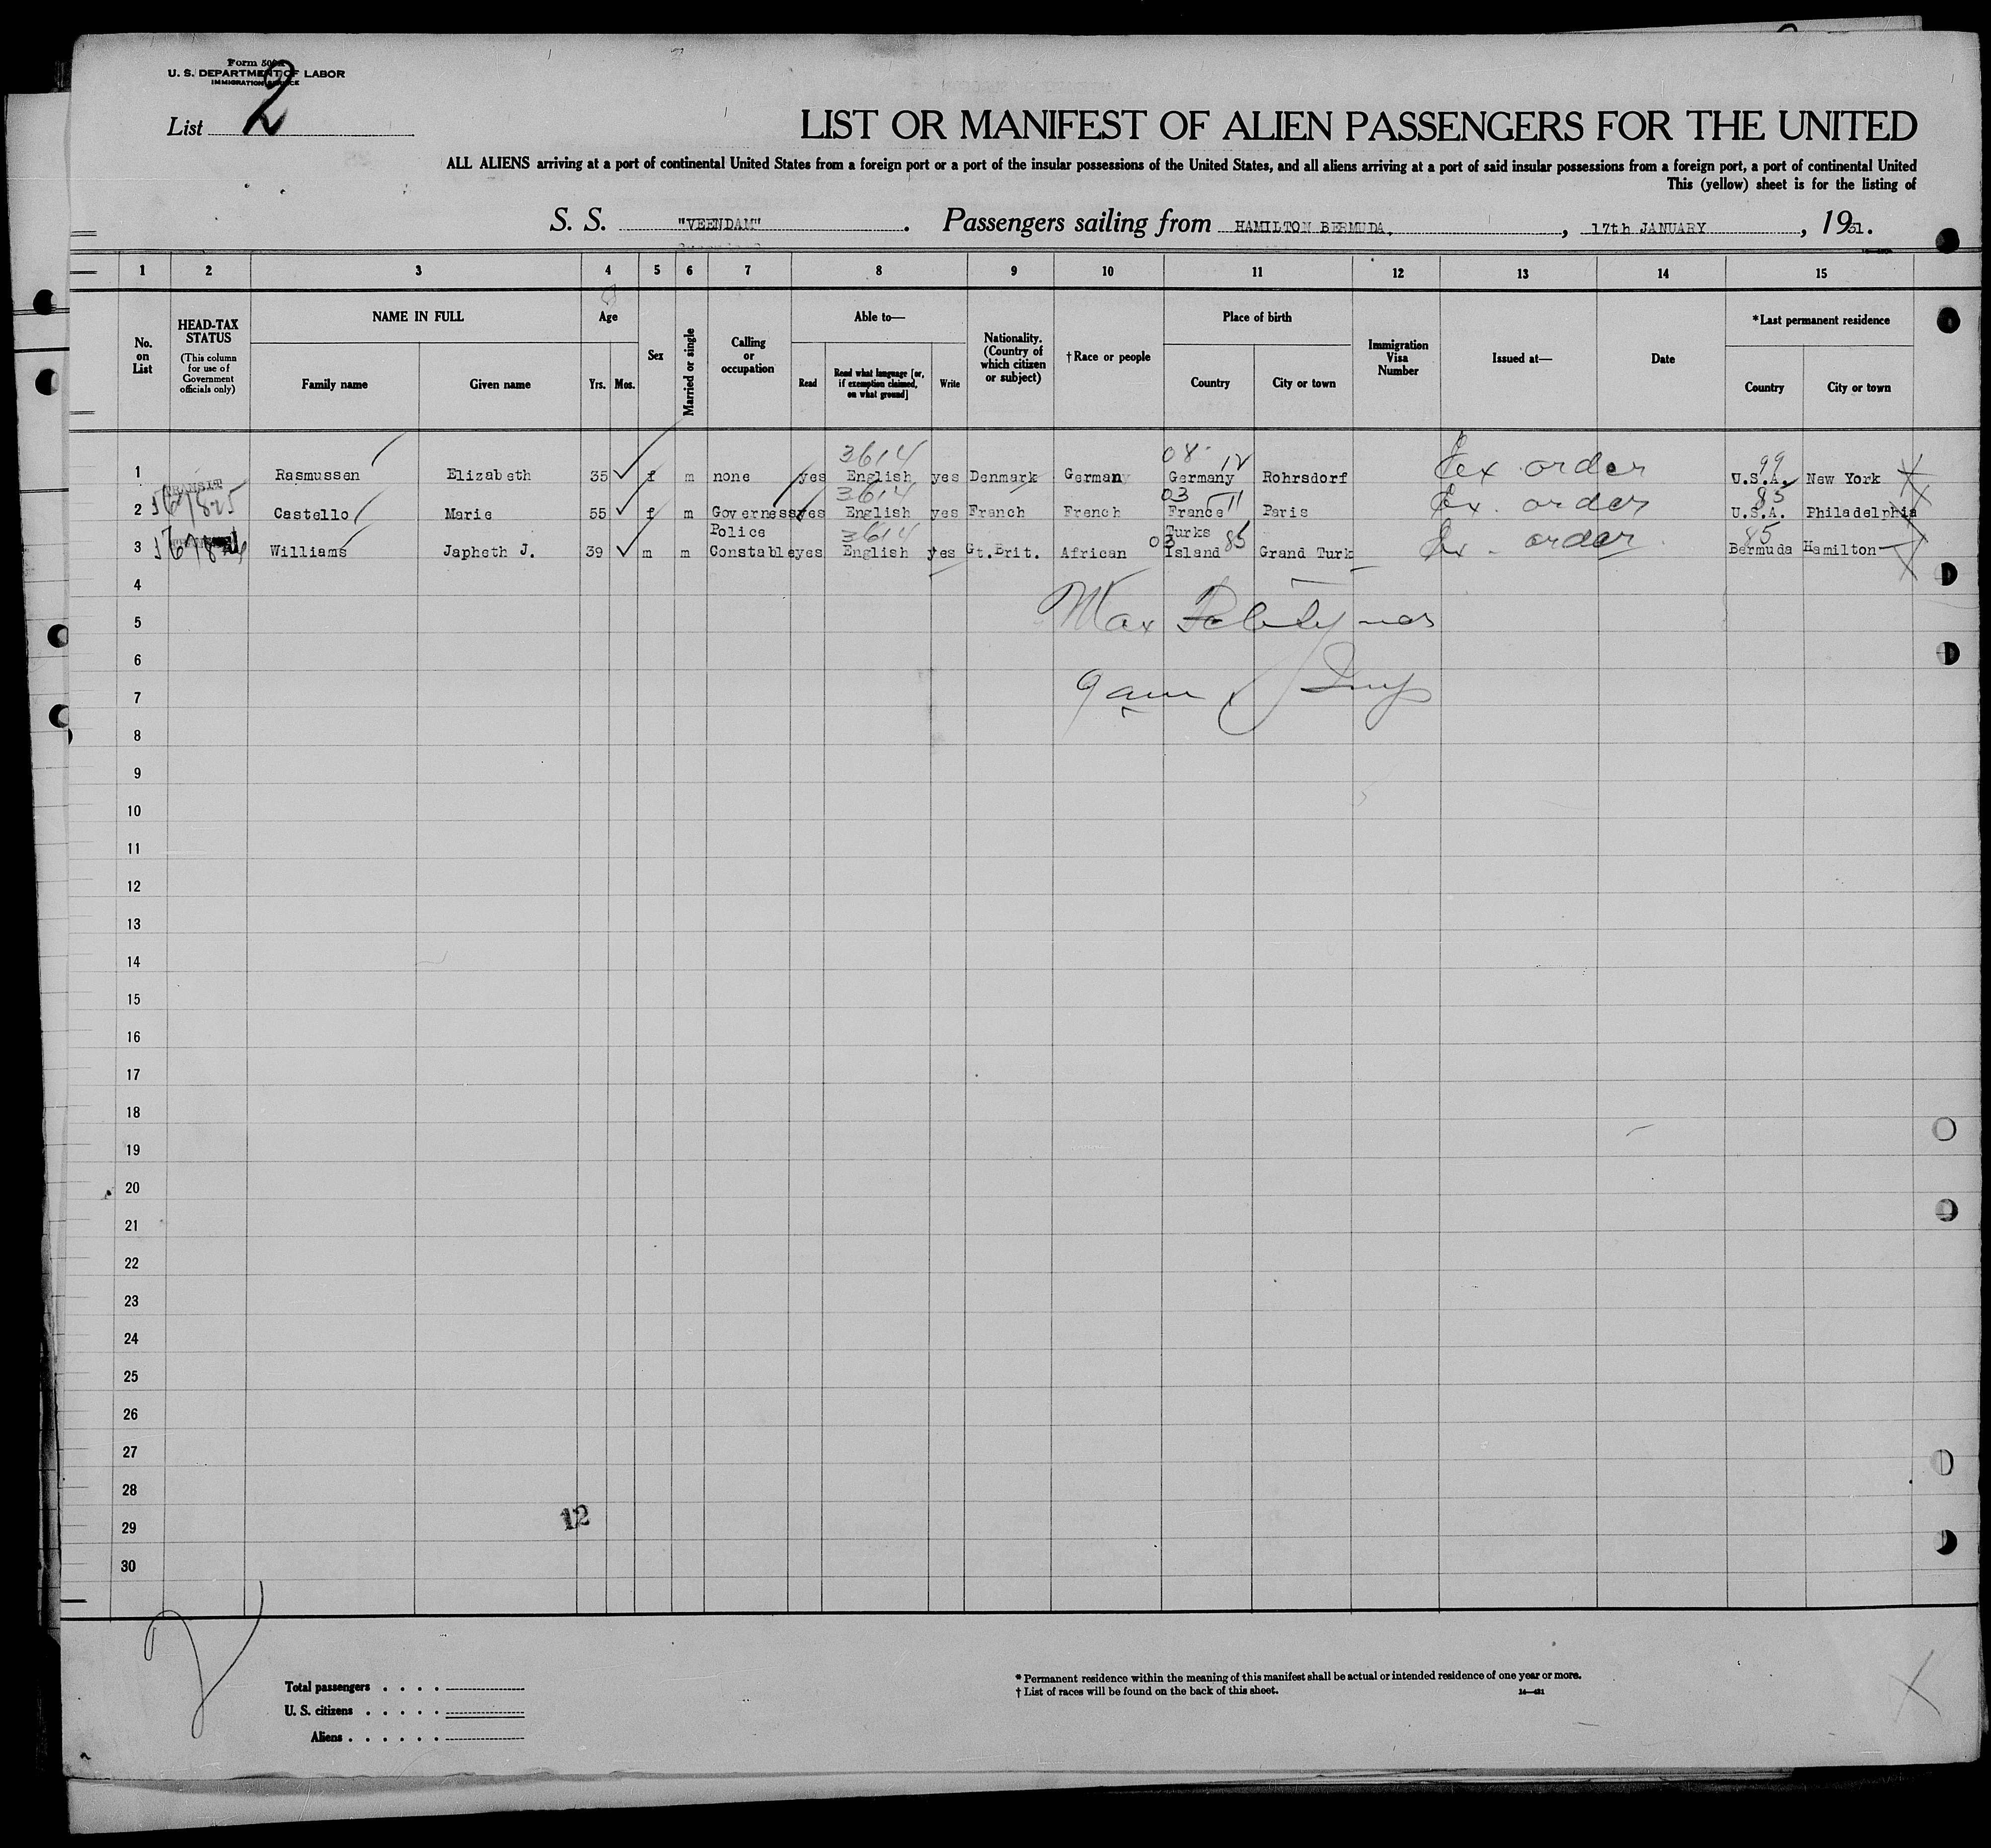 Form 500
U. S. DEPARTMENT OF LABOR
IMMIGRATION SERVICE
List 2
LIST OR MANIFEST OF ALIEN PASSENGERS FOR THE UNITED
ALL ALIENS arriving at a port of continental United States from a foreign port or a port of the insular possessions of the United States, and all aliens arriving at a port of said insular possessions from a foreign port, a port of continental United
This (yellow) sheet is for the listing of
S. S. "VEENDAM". Passengers sailing from HAMILTON BERMUDA, 17th JANUARY, 1931.
1 2 3 4 5 6 7 8 9 10 11 12 13 14 15
No. on List
HEAD-TAX STATUS
(This column for use of Government officials only)
NAME IN FULL
Family name Given name
Age
Yrs. Mos.
Sex
Married or single
Calling or occupation
Able to—
Read
Read what language [or, if exemption claimed, on what ground]
Write
Nationality. (Country of which citizen or subject)
†Race or people
Place of birth
Country City or town
Immigration Visa Number
Issued at—
Date
*Last permanent residence
Country City or town
3614 08 12 99
1 Rasmussen Elizabeth 35 f m none yes English yes Denmark German Germany Rohrsdorf Ex order U.S.A. New York
TRANSIT 3614 03 11 85
2 Castello Marie 55 f m Governess yes English yes French French France Paris Ex. order U.S.A. Philadelphia
Police 3614 Turks 03 85 85
3 Williams Japheth J. 39 m m Constable yes English yes Gt.Brit. African Island Grand Turk Ex. order Bermuda Hamilton
4
5 Max
6
7 9 am Insp
8
9
10
11
12
13
14
15
16
17
18
19
20
21
22
23
24
25
26
27
28
29 12
30
2
Total passengers . . . .
U. S. citizens . . . . .
Aliens . . . . . .
* Permanent residence within the meaning of this manifest shall be actual or intended residence of one year or more.
† List of races will be found on the back of this sheet.
14—421